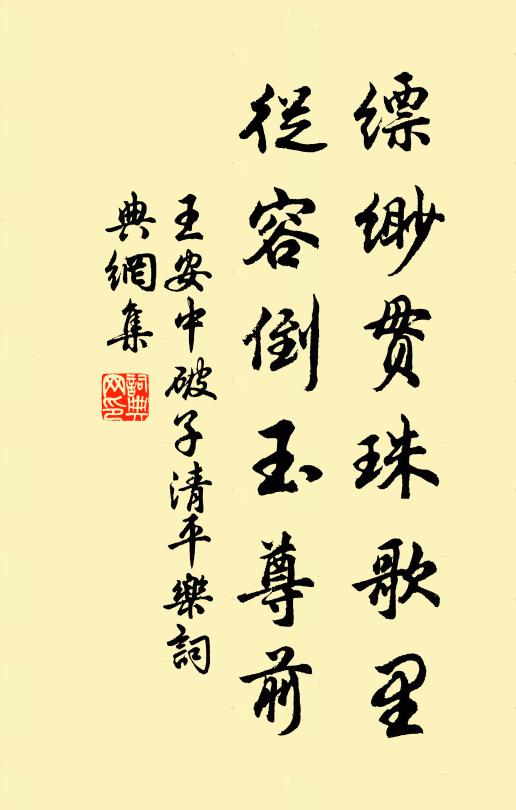 縹緲貫珠歌里
從容倒玉尊前
王安中破子清平樂詞
典網集
詞典網印